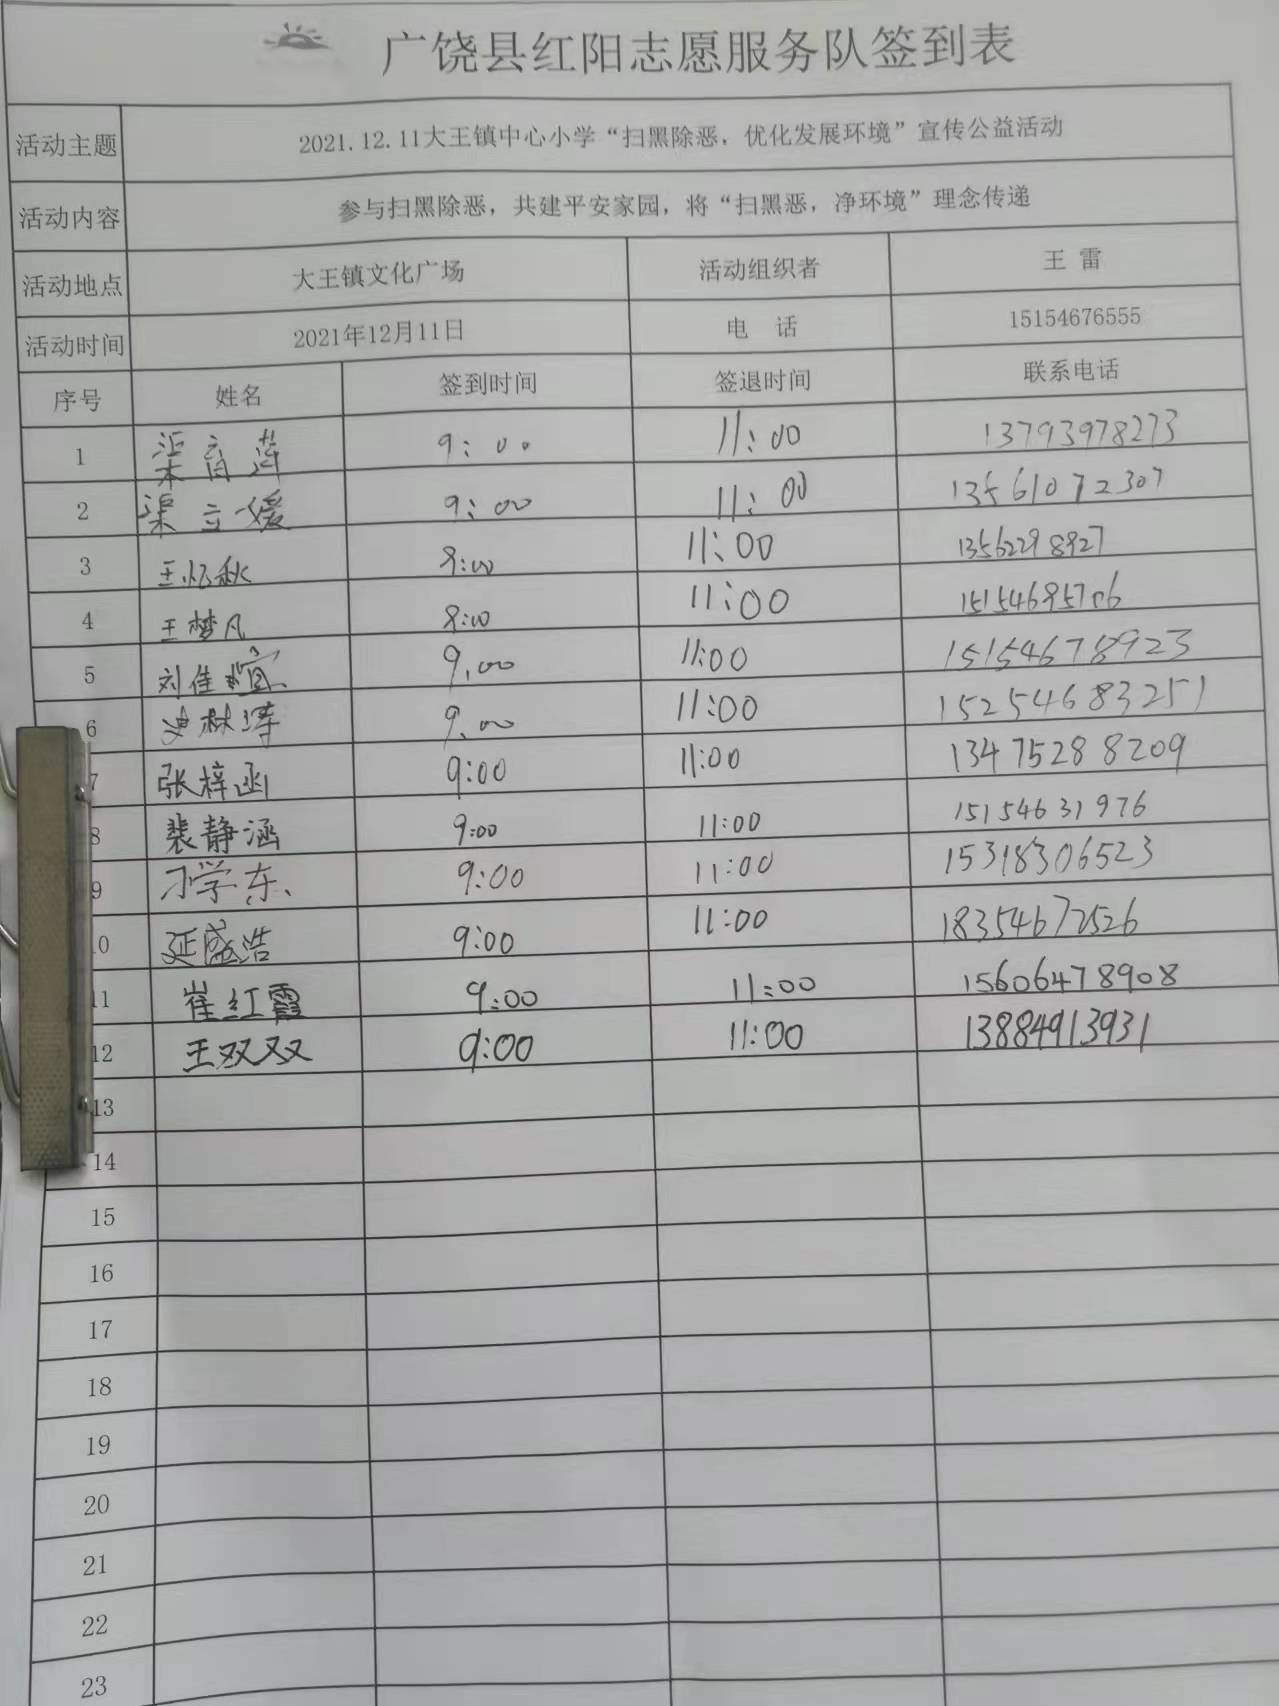 广饶县红阳志愿服务队签到表
活动主题 2021.12.11大王镇中心小学“扫黑除恶，优化发展环境”宣传公益活动
活动内容 参与扫黑除恶，共建平安家园，将“扫黑恶，净环境”理念传递
活动地点 大王镇文化广场 活动组织者 王 雷
活动时间 2021年12月11日 电 话 15154676555
序号 姓名 签到时间 签退时间 联系电话
1 9:00 11:00 13793978273
2 渠立媛 9:00 11:00 13561072307
3 王忆秋 8:00 11:00 13562298927
4 王梦凡 8:00 11:00 15154695706
5 刘佳 9.00 11:00 15154678923
6 9.00 11:00 15254683251
7 张梓函 9:00 11:00 13475288209
8 裴静涵 9:00 11:00 15154631976
9 刁学东、 9:00 11:00 15318306523
10 延盛浩 9:00 11:00 18354672526
11 崔红霞 9:00 11:00 15606478908
12 王双双 9:00 11:00 13884913931
13
14
15
16
17
18
19
20
21
22
23